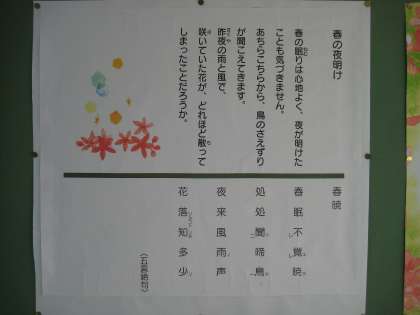 春の夜明け
春の眠りは心地よく、夜が明けた
ことも気づきません。
あちらこちらから、鳥のさえずり
が聞こえてきます。
昨夜の雨と風で、
咲いていた花が、どれほど散って
しまったことだろうか。
春暁
春眠不覚暁
処処聞啼鳥
夜来風雨声
花落知多少
（五言絶句）